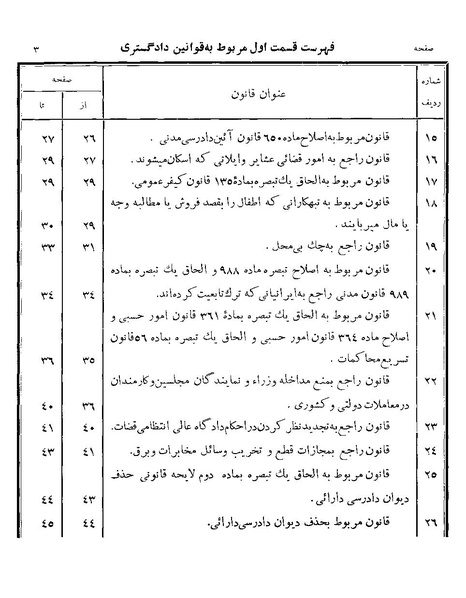 صفحه فهرست قسمت اول مربوط به‌قوانین دادگستری ۳
شماره ردیف عنوان قانون صفحه از تا
۱۵ قانون مربوط به‌اصلاح ماده ۶۵۰ قانون آئین دادرسی مدنی . ۲۶ ۲۷
۱۶ قانون راجع به امور قضائی عشایر وایلاتی که اسکان میشوند . ۲۷ ۲۹
۱۷ قانون مربوط به‌الحاق یك تبصره بمادهٔ ۱۳۵ قانون کیفر عمومی. ۲۹ ۲۹
۱۸ قانون مربوط به تبهکارانی که اطفال را بقصد فروش یا مطالبه وجه
یا مال میربایند . ۲۹ ۳۰
۱۹ قانون راجع به‌چك بی‌محل . ۳۱ ۳۳
۲۰ قانون مربوط به اصلاح تبصره ماده ۹۸۸ و الحاق یك تبصره بماده
۹۸۹ قانون مدنی راجع به‌ایرانیانی که ترك تابعیت کرده‌اند. ۳۴ ۳۴
۲۱ قانون مربوط به الحاق یك تبصره بمادهٔ ۳۶۱ قانون امور حسبی و
اصلاح ماده ۳۶۴ قانون امور حسبی و الحاق یك تبصره بماده ۵۶ قانون
تسریع محاکمات . ۳۵ ۳۶
۲۲ قانون راجع بمنع مداخله وزراء و نمایندگان مجلسین و کارمندان
در معاملات دولتی و کشوری . ۳۶ ۴۰
۲۳ قانون راجع به‌تجدید نظر کردن در احکام دادگاه عالی انتظامی قضات. ۴۰ ۴۱
۲۴ قانون راجع بمجازات قطع و تخریب وسائل مخابرات وبرق. ۴۱ ۴۳
۲۵ قانون مربوط به الحاق یك تبصره بماده دوم لایحه قانونی حذف
دیوان دادرسی دارائی. ۴۳ ۴۴
۲۶ قانون مربوط بحذف دیوان دادرسی دارائی. ۴۴ ۴۵